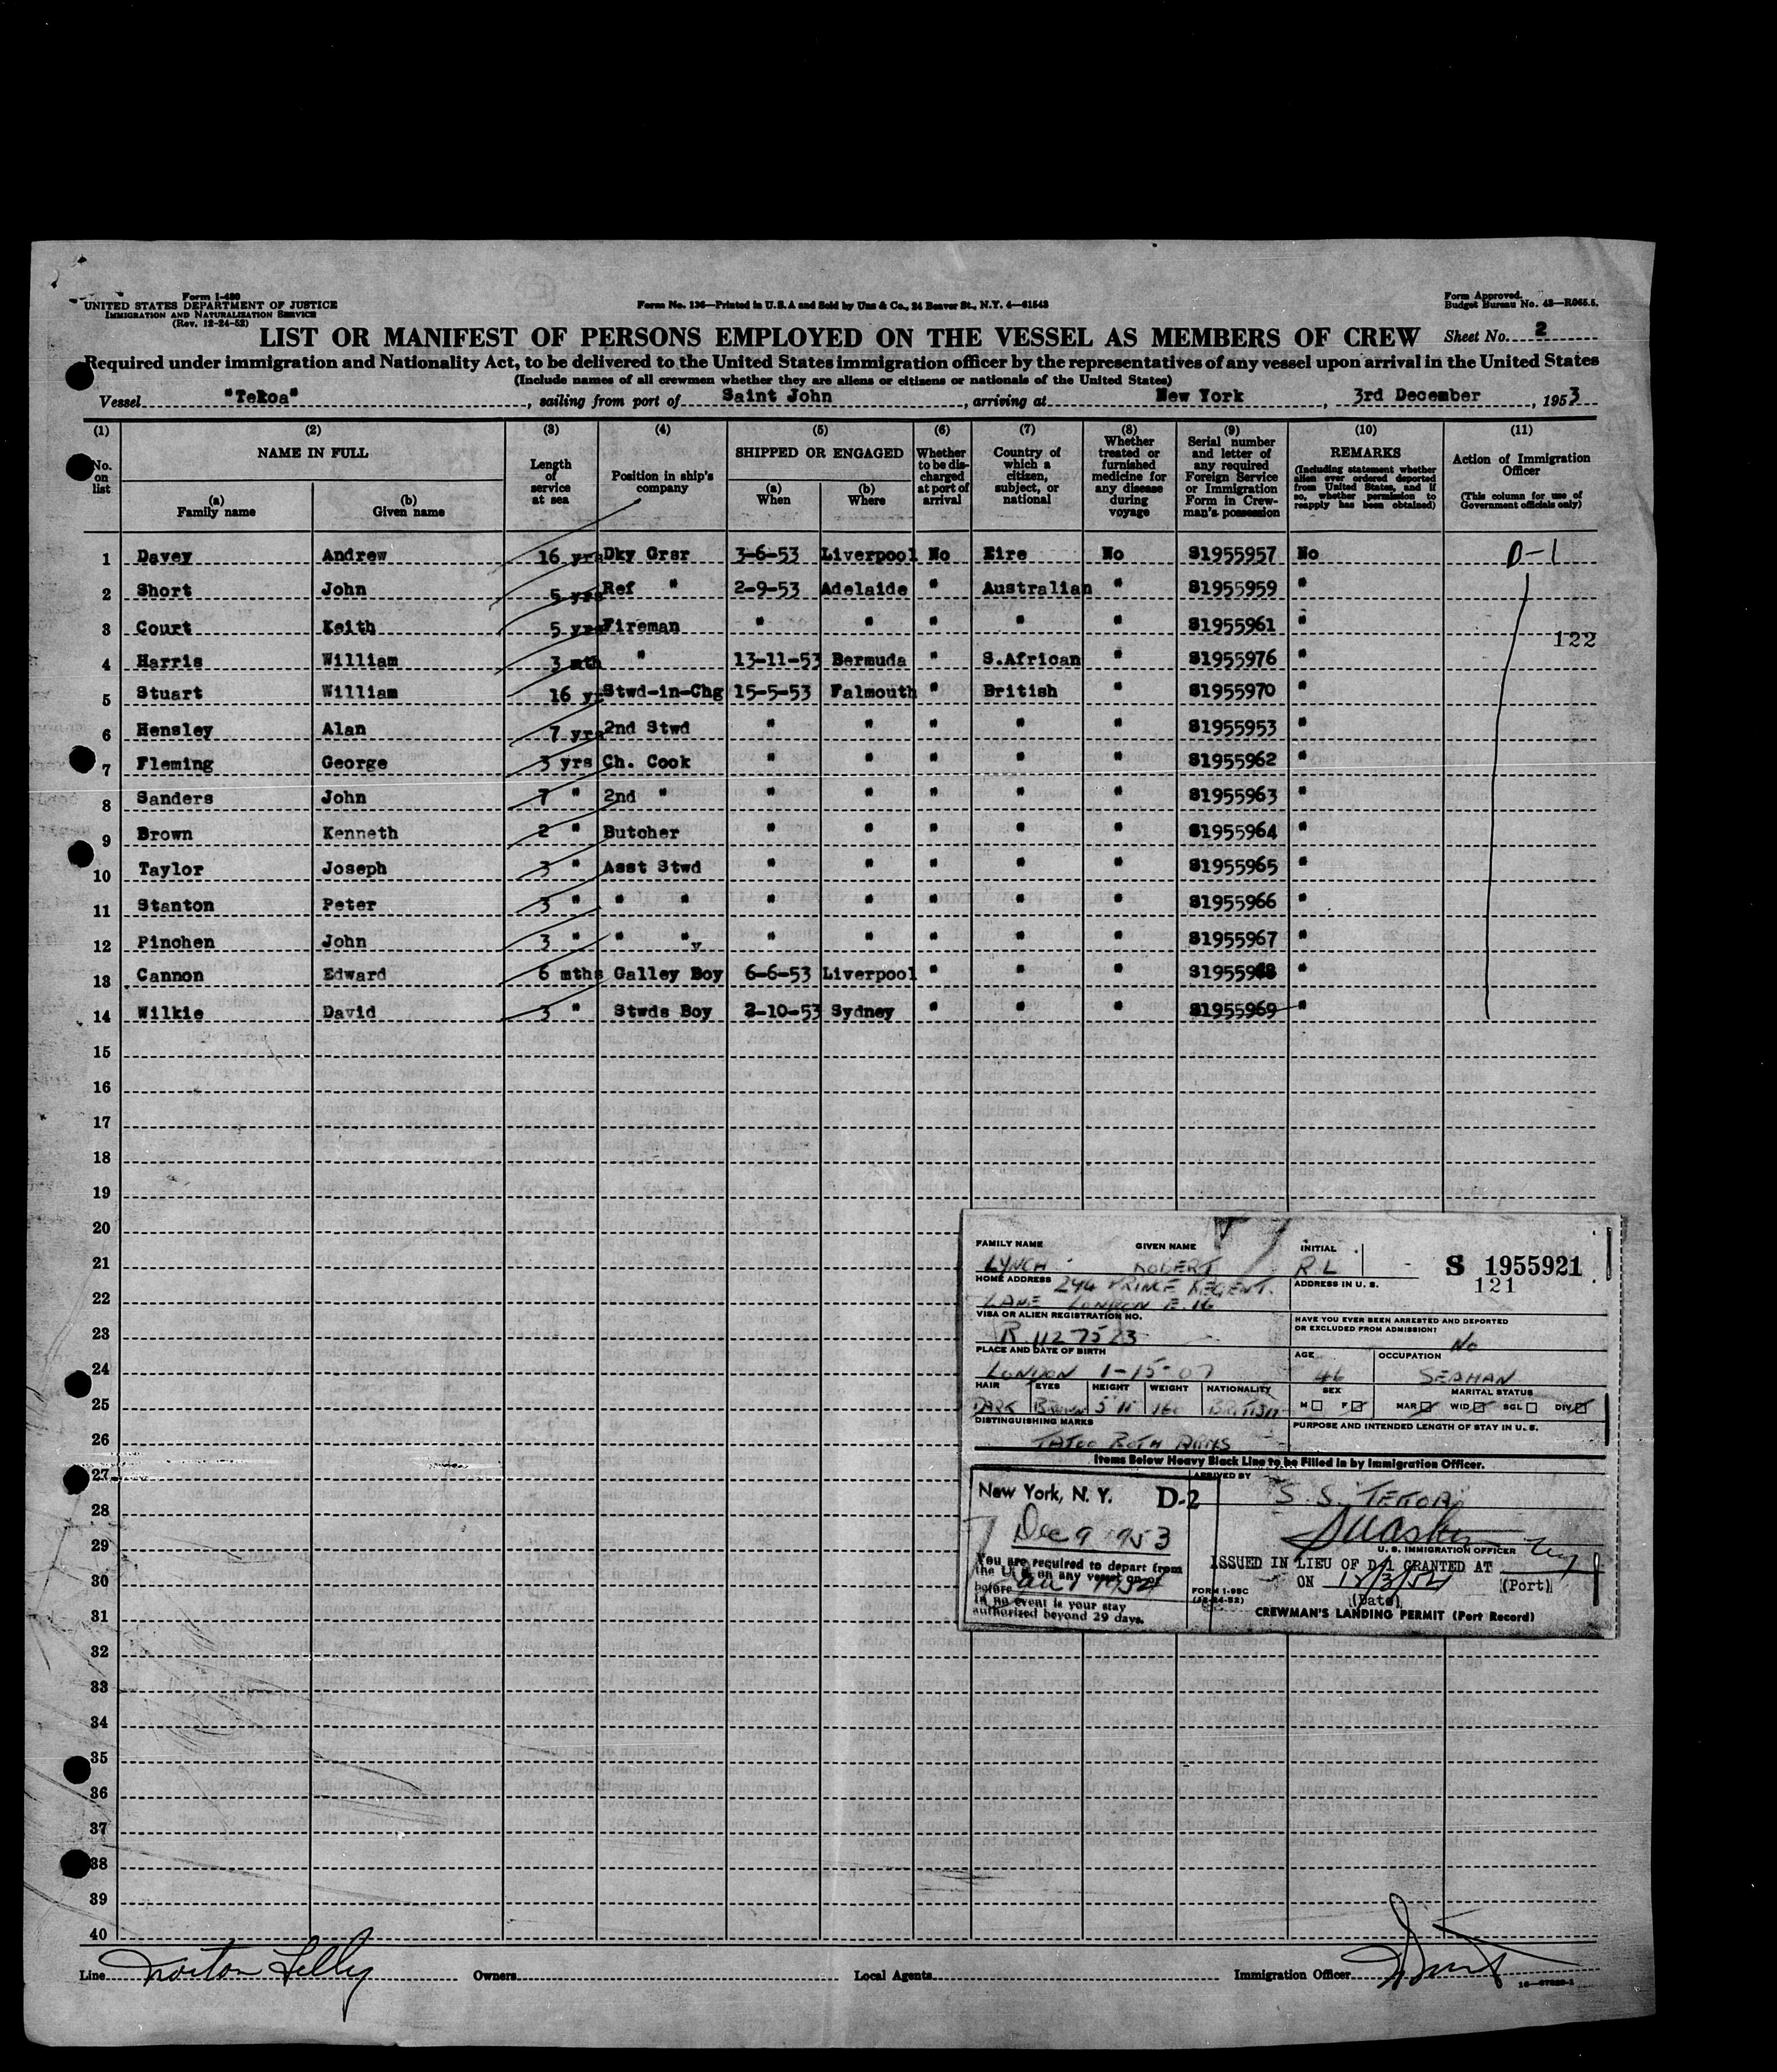 Form I-480
UNITED STATES DEPARTMENT OF JUSTICE
IMMIGRATION AND NATURALIZATION SERVICE
(Rev. 12-24-52)
Form No. 136—Printed in U.S.A and Sold by Unz & Co., 24 Beaver St., N.Y. 4—61543
Form Approved.
Budget Bureau No. 43—R065.5.
LIST OR MANIFEST OF PERSONS EMPLOYED ON THE VESSEL AS MEMBERS OF CREW
Sheet No. 2
Required under immigration and Nationality Act, to be delivered to the United States immigration officer by the representatives of any vessel upon arrival in the United States
(Include names of all crewmen whether they are aliens or citizens or nationals of the United States)
Vessel "Tekoa", sailing from port of Saint John, arriving at New York, 3rd December, 1953
(1) (2) (3) (4) (5) (6) (7) (8) (9) (10) (11)
No. on list
NAME IN FULL
(a) Family name
(b) Given name
Length of service at sea
Position in ship's company
SHIPPED OR ENGAGED
(a) When
(b) Where
Whether to be discharged at port of arrival
Country of which a citizen, subject, or national
Whether treated or furnished medicine for any disease during voyage
Serial number and letter of any required Foreign Service or Immigration Form in Crewman's possession
REMARKS
(Including statement whether alien ever ordered deported from United States, and if so, whether permission to reapply has been obtained)
Action of Immigration Officer
(This column for use of Government officials only)
1 Davey Andrew 16 yrs Dky Grsr 3-6-53 Liverpool No Eire No S1955957 No D-1
2 Short John 5 yrs Ref " 2-9-53 Adelaide " Australian " S1955959 "
3 Court Keith 5 yrs Fireman " " " " " S1955961 "
122
4 Harris William 3 mth " 13-11-53 Bermuda " S.African " S1955976 "
5 Stuart William 16 yr Stwd-in-Chg 15-5-53 Falmouth " British " S1955970 "
6 Hensley Alan 7 yrs 2nd Stwd " " " " " S1955953 "
7 Fleming George 3 yrs Ch. Cook " " " " " S1955962 "
8 Sanders John 7 " 2nd " " " " " " S1955963 "
9 Brown Kenneth 2 " Butcher " " " " " S1955964 "
10 Taylor Joseph 3 " Asst Stwd " " " " " S1955965 "
11 Stanton Peter 3 " " " " " " " " S1955966 "
12 Pinchen John 3 " " " " " " " " S1955967 "
13 Cannon Edward 6 mths Galley Boy 6-6-53 Liverpool " " " "
14 Wilkie David 3 " Stwds Boy 2-10-53 Sydney " " " S1955969 "
15
16
17
18
19
20
21
22
23
24
25
26
27
28
29
30
31
32
33
34
35
36
37
38
39
40
FAMILY NAME GIVEN NAME INITIAL
LYNCH ROBERT RL S 1955921
121
HOME ADDRESS 244 PRINCE REGENT. ADDRESS IN U. S.
LANE LONDON E.16
VISA OR ALIEN REGISTRATION NO.
R 1127523
HAVE YOU EVER BEEN ARRESTED AND DEPORTED
OR EXCLUDED FROM ADMISSION? No
PLACE AND DATE OF BIRTH AGE OCCUPATION
LONDON 1-15-07 46 SEAMAN
HAIR EYES HEIGHT WEIGHT NATIONALITY SEX MARITAL STATUS
DARK BROWN 5 11 160 BRITISH M F MAR WID SGL DIV
DISTINGUISHING MARKS PURPOSE AND INTENDED LENGTH OF STAY IN U. S.
TATOO BOTH ARMS
Items Below Heavy Black Line to be Filled in by Immigration Officer.
New York, N. Y. D-2
Dec 9 1953
You are required to depart from
the U.S. on any vessel on or
before
In no event is your stay
authorized beyond 29 days.
ARRIVED BY
S.S. TEKOA
U. S. IMMIGRATION OFFICER
ISSUED IN LIEU OF D-1 GRANTED AT
(Port)
ON
(Date)
FORM I-95C
(12-24-52)
CREWMAN'S LANDING PERMIT (Port Record)
Line Norton Lilly Owners Local Agents Immigration Officer